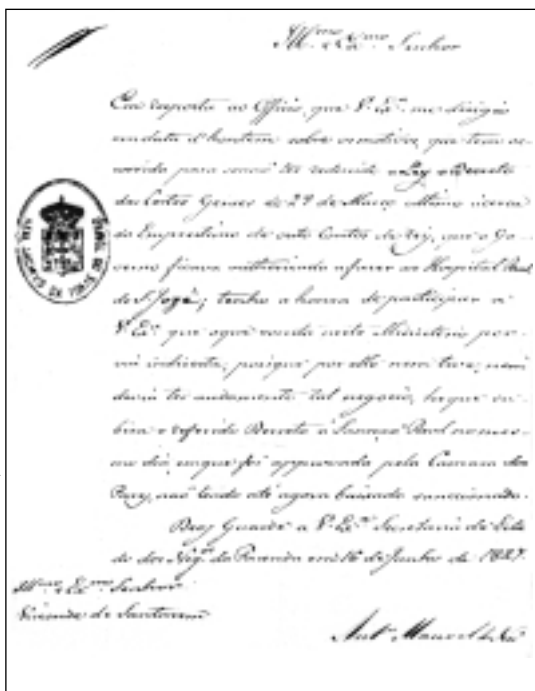 Ill.mo e Ex.mo Senhor
Em resposta ao Officio, que V. Ex.a me dirigio
em data d'hontem sobre os motivos, que tem oc-
corrido para não ter reduzido a Ley o Decreto
das Cortes Geraes de 29 de Março ultimo ácerca
do Emprestimo de oito Contos de reis, que o Go-
verno ficava authorisado a fazer ao Hospital Real
de S. José; tenho a honra de participar a
V. Ex.a que aqui nada neste Ministerio
porque por elle nem teve, nem
devia ter andamento tal negocio,
o referido Decreto á Sancção Real no mes-
mo dia, em que foi approvado pela Camara dos
Pares, não tendo até agora baixado sanccionado.
Deos Guarde a V. Ex.a Secretaria de Esta-
do dos Neg.os da Fazenda em 16 de Junho de 1827.
Ill.mo e Ex.mo Senhor
Visconde de Santarem
Ant.o Manoel de